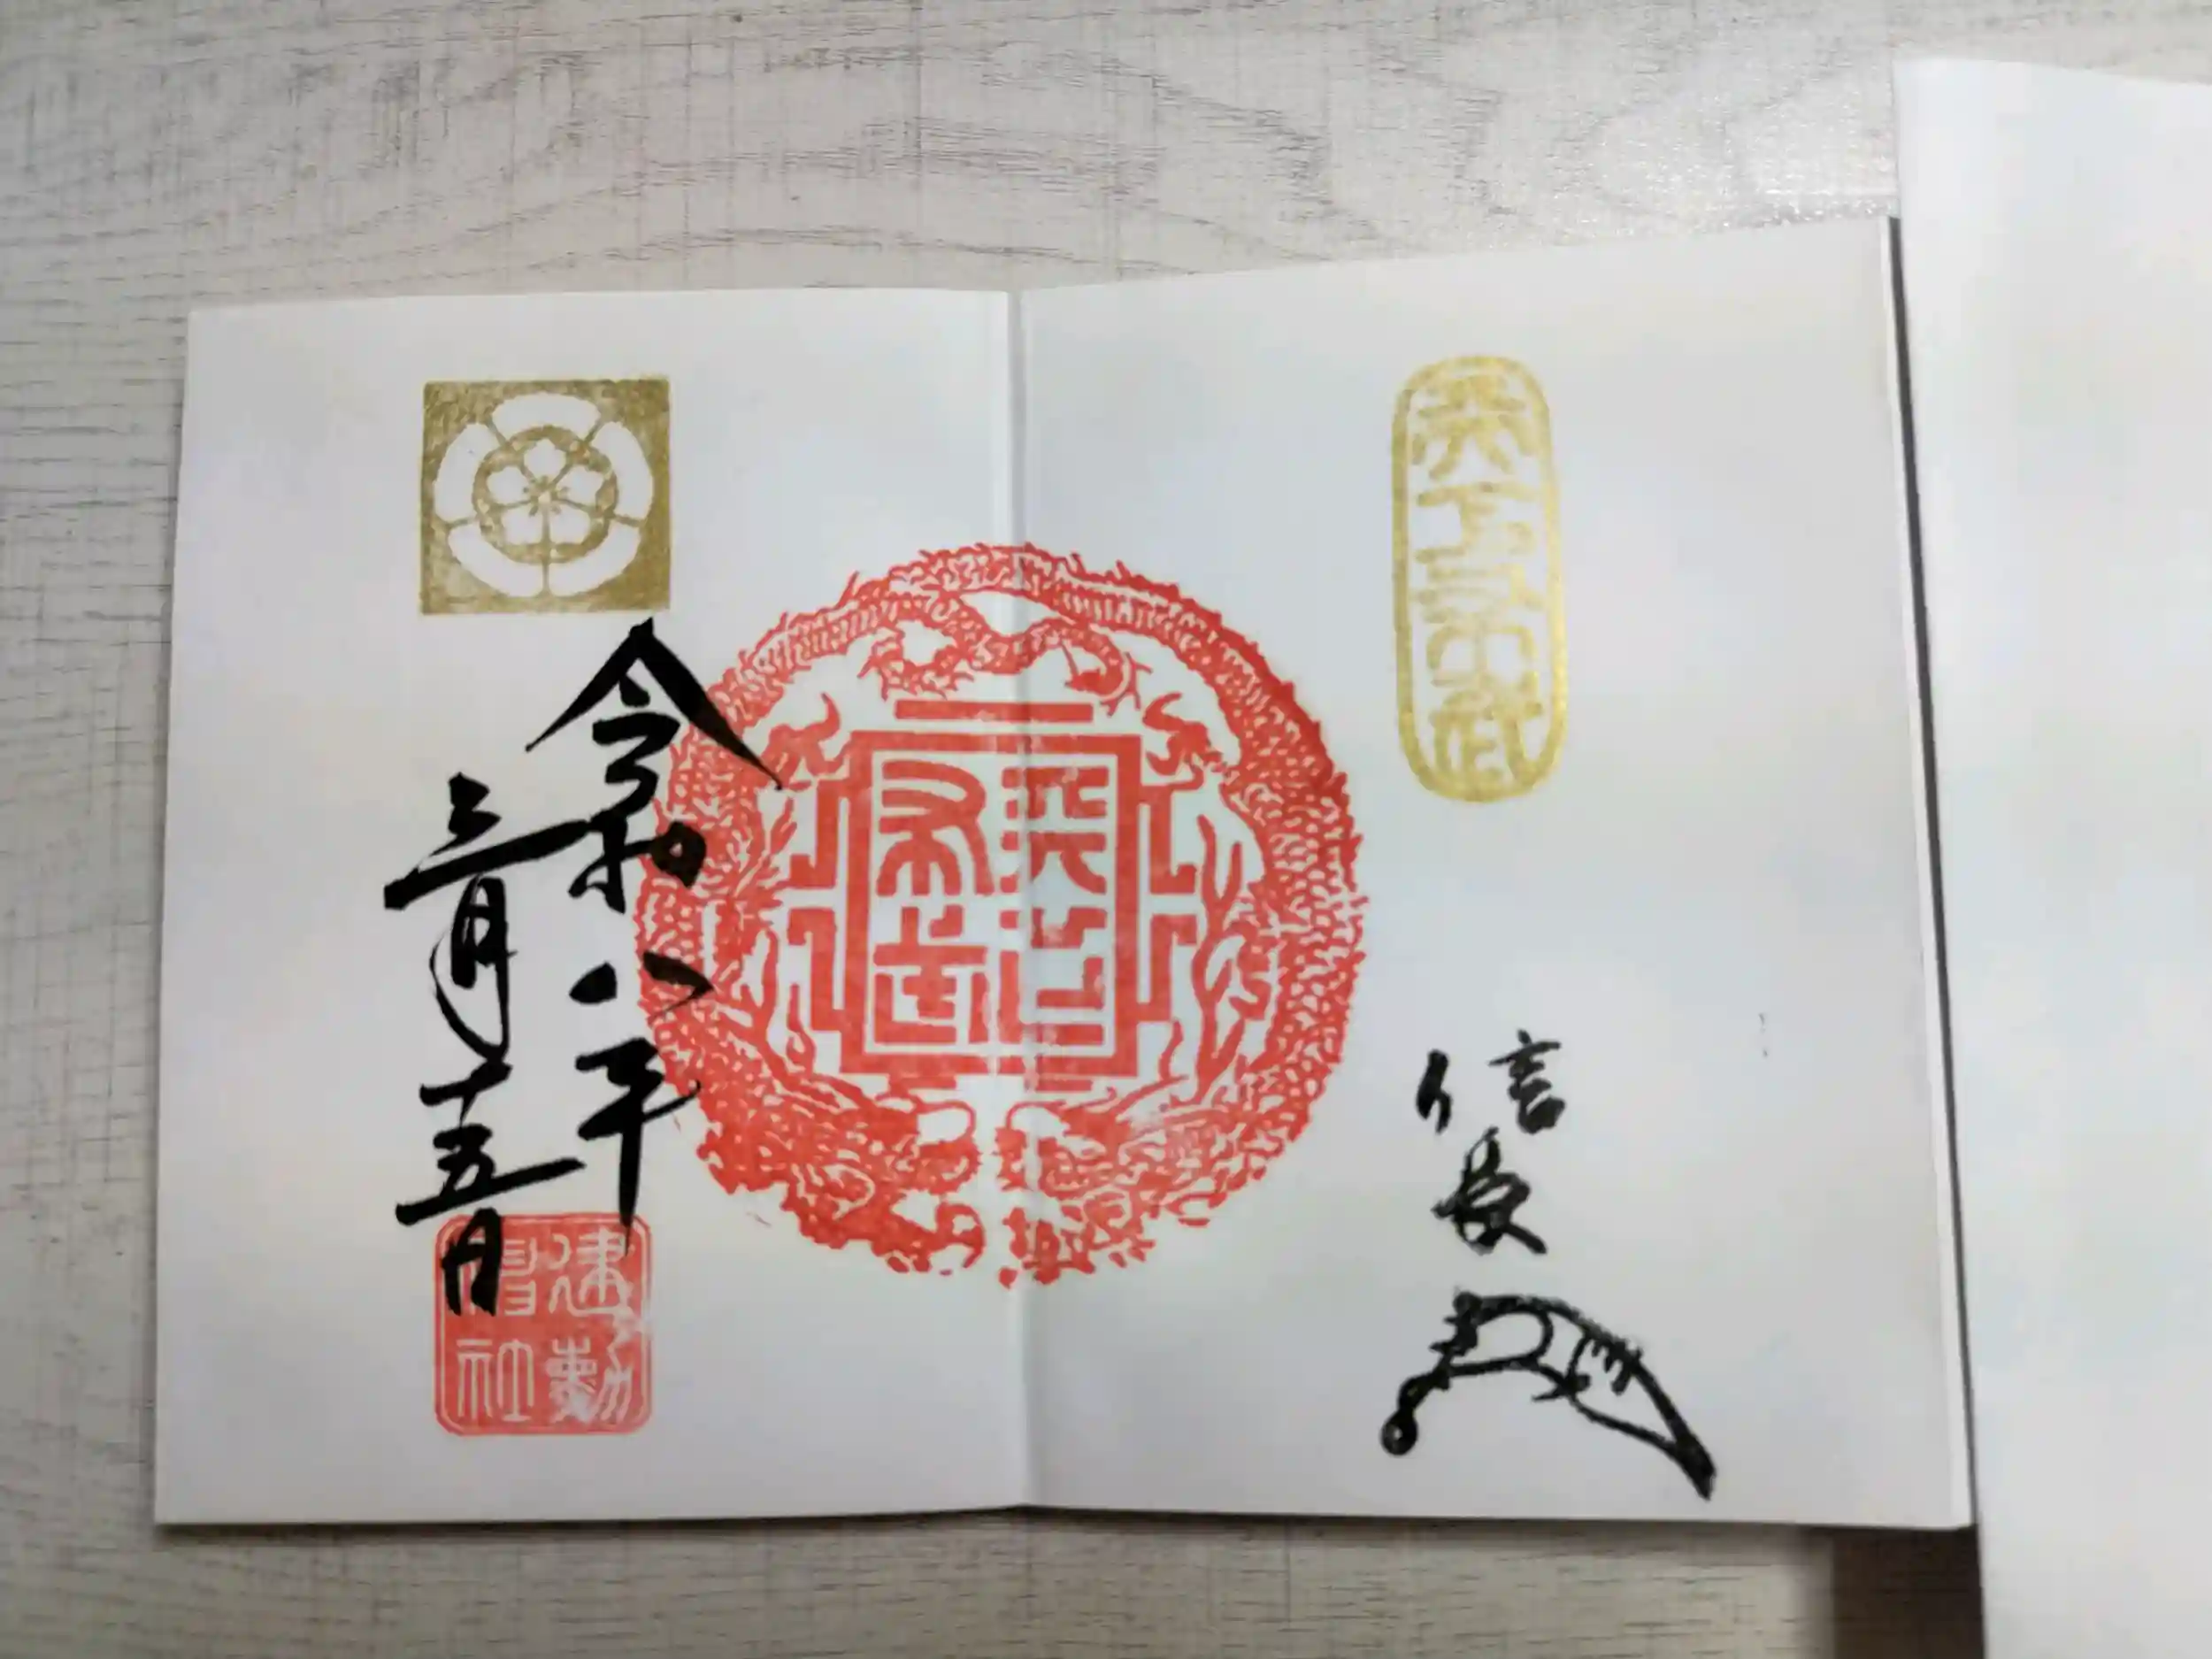 天下布武
信長
天下布武
令和八年
三月十五日
建勲
神社